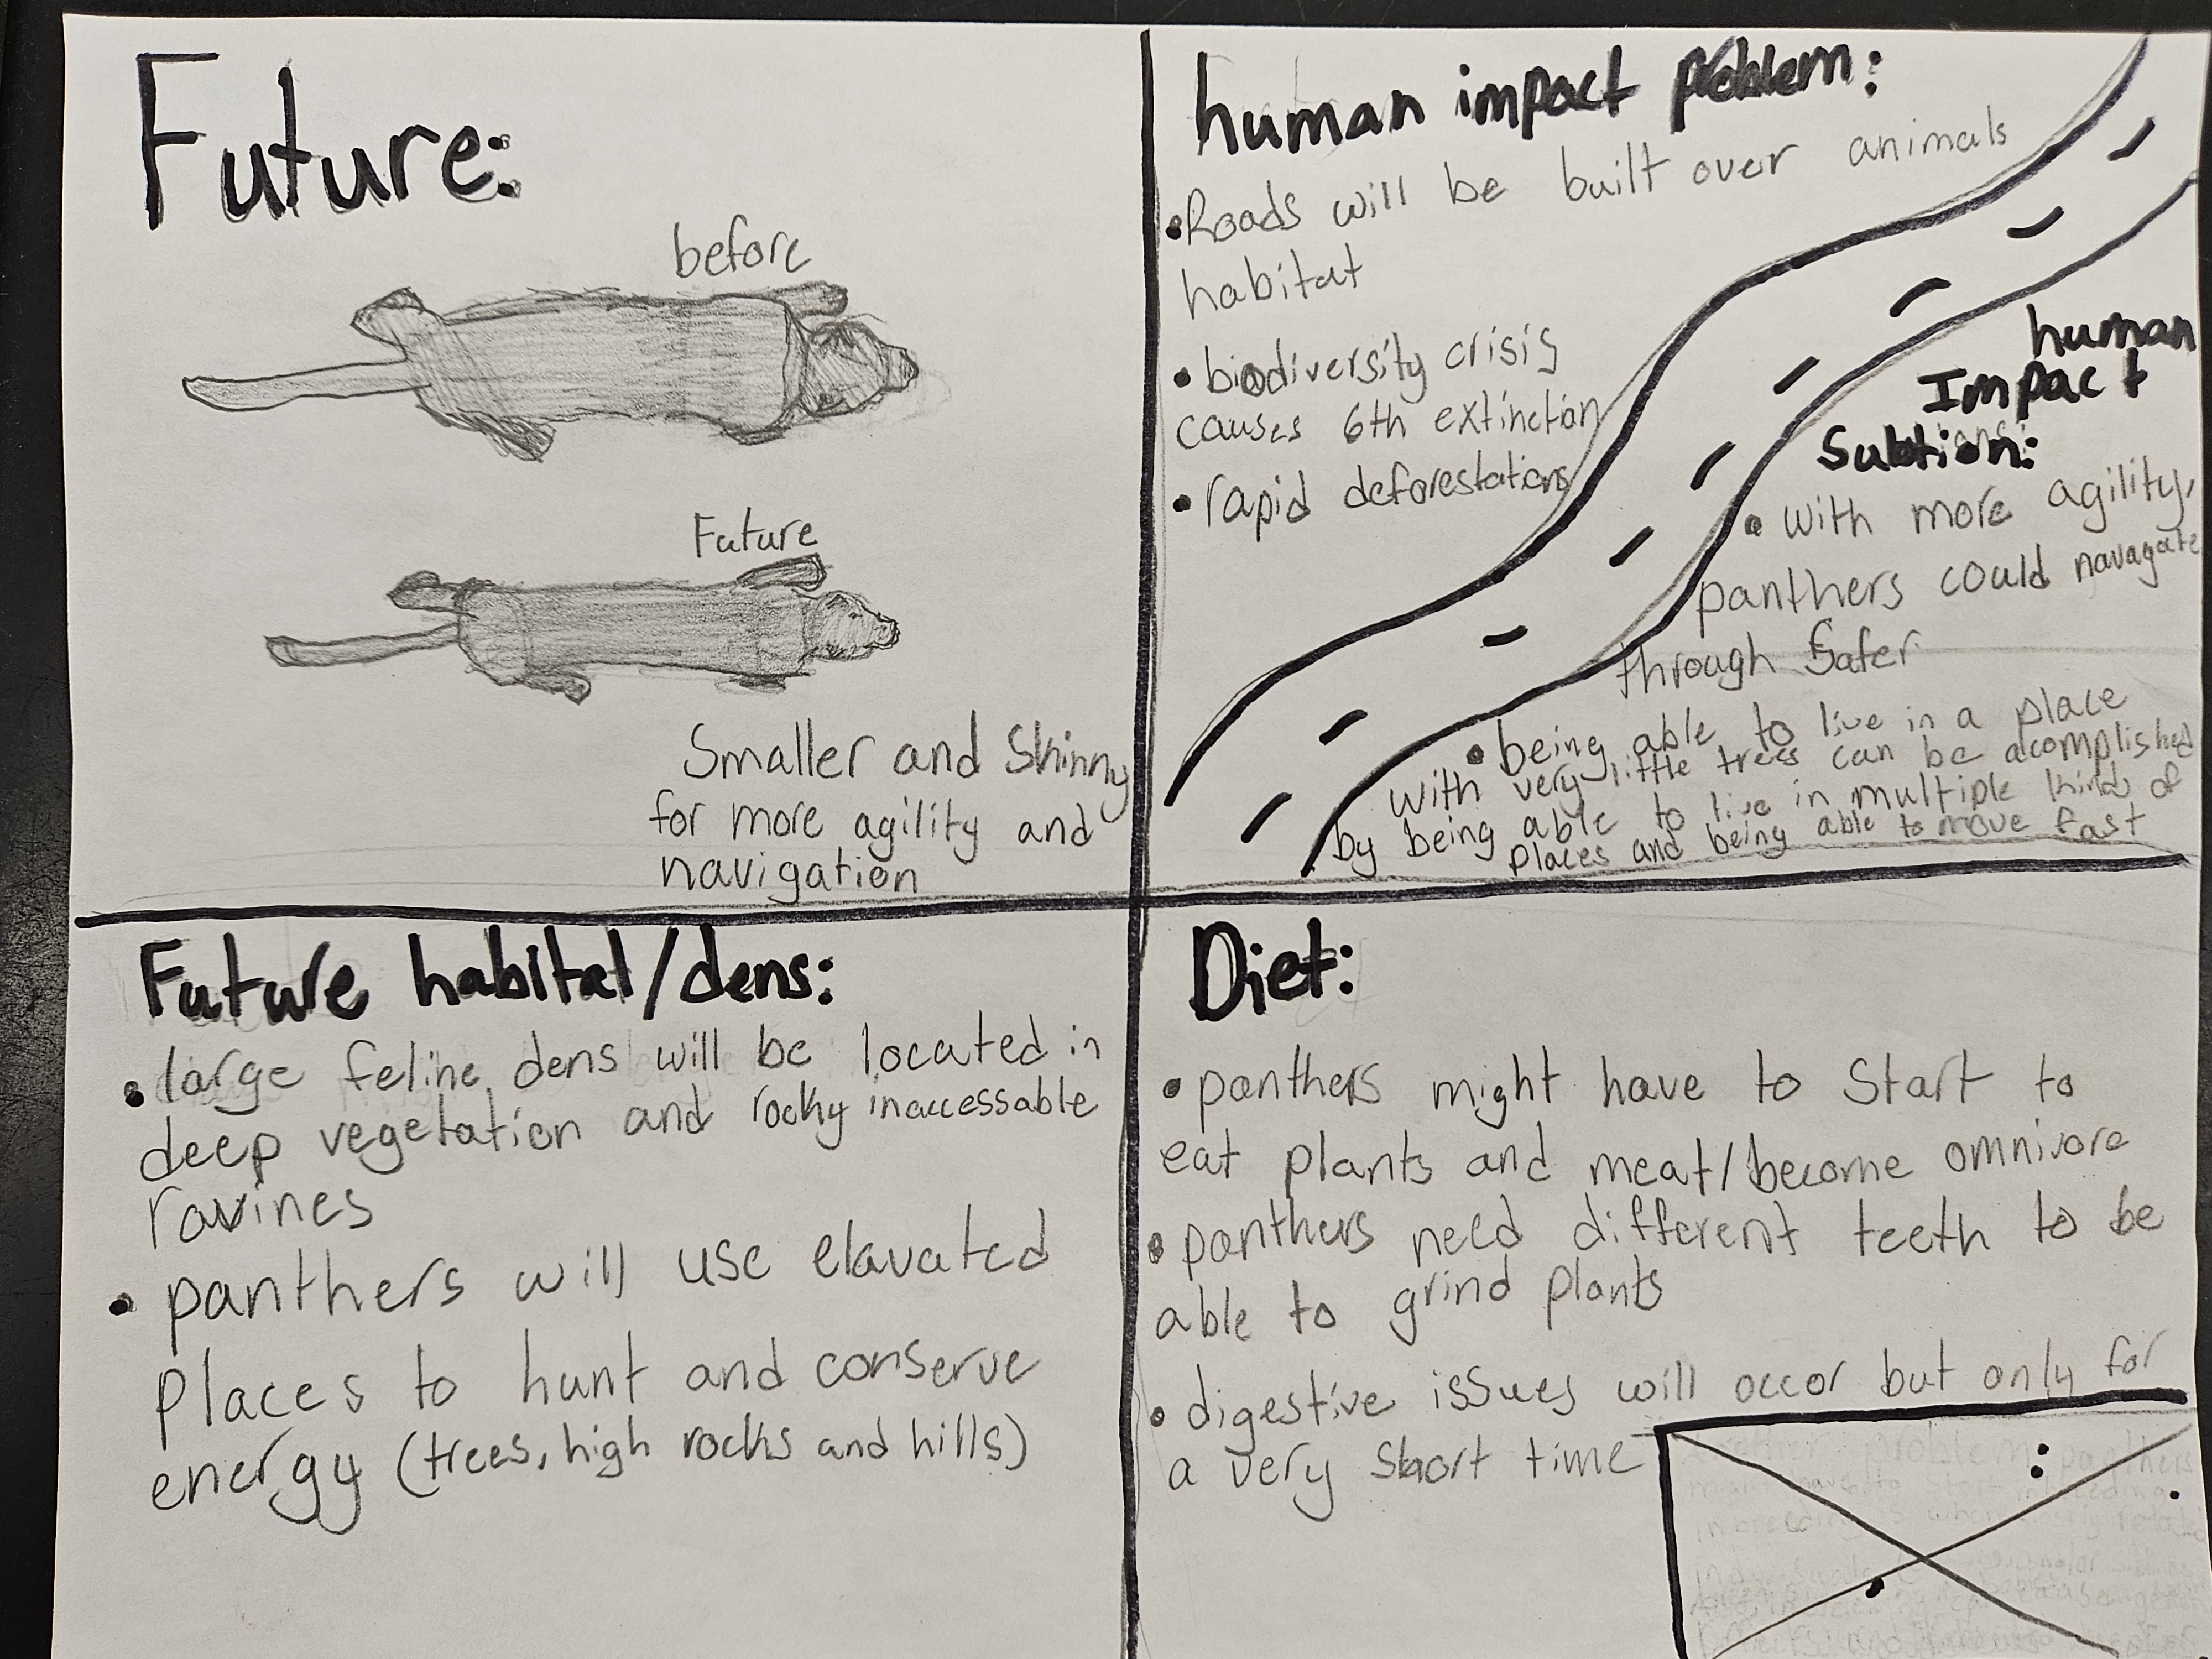 Future:
before
Future
Smaller and Skinny
for more agility and
navigation
human impact problem:
•Roads will be built over animals
habitat
• biodiversity crisis
causes 6th extinction
• rapid deforestations
human
Impact
Solution:
• with more agility,
panthers could navagate
through safer
• being able to live in a place
with very little trees can be acomplished
by being able to live in multiple kinds of
places and being able to move fast
Future habital/dens:
• large feline dens will be located in
deep vegetation and rocky inaccessable
ravines
• panthers will use elavated
places to hunt and conserve
energy (trees, high rocks and hills)
Diet:
• panthers might have to Start to
eat plants and meat/become omnivore
• panthers need different teeth to be
able to grind plants
• digestive issues will occor but only for
a very short time
problem panthers
might have to start inbreeding
inbreeding is when